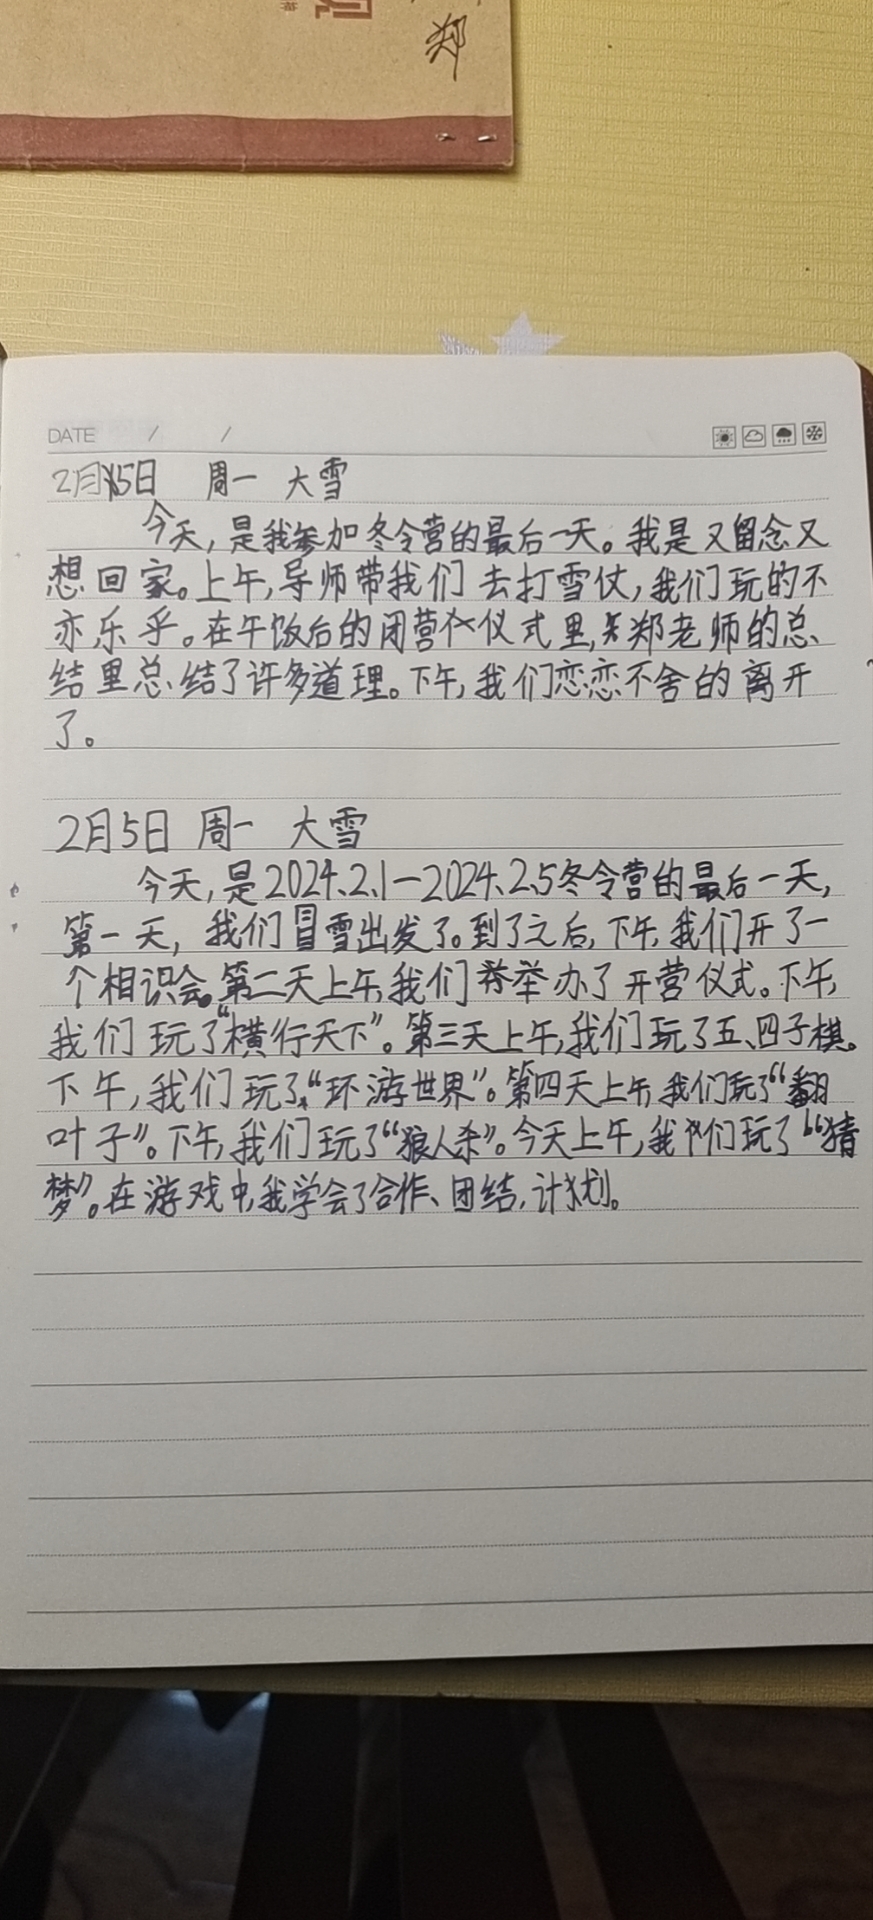 郑
DATE / /
2月5日 周一 大雪
今天,是我参加冬令营的最后一天。我是又留念又
想回家。上午,导师带我们去打雪仗,我们玩的不
亦乐乎。在午饭后的闭营仪式里,郑老师的总
结里总结了许多道理。下午,我们恋恋不舍的离开
了。
2月5日 周一 大雪
今天,是2024.2.1—2024.2.5冬令营的最后一天,
第一天,我们冒雪出发了。到了之后,下午,我们开了一
个相识会。第二天上午,我们举办了开营仪式。下午,
我们玩了“横行天下”。第三天上午,我们玩了五、四子棋。
下午,我们玩了“环游世界”。第四天上午,我们玩了“翻
叶子”。下午,我们玩了“狼人杀”。今天上午,我们玩了“猜
梦”。在游戏中,我学会了合作、团结,计划。